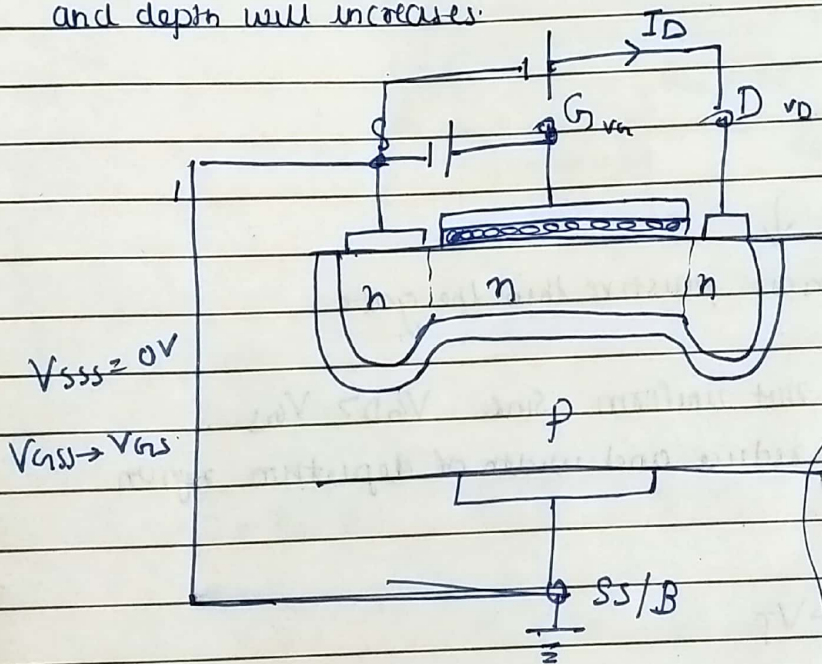 and depth will increases.
I_D
S
G V_G
D V_D
n n n
V_SSS = 0V
V_GSS → V_GS.
P
SS/B